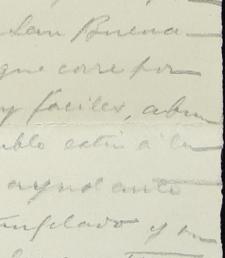 San Buena
que corre por
y faciles, abun
blo está á la
ayudante
anglado y su